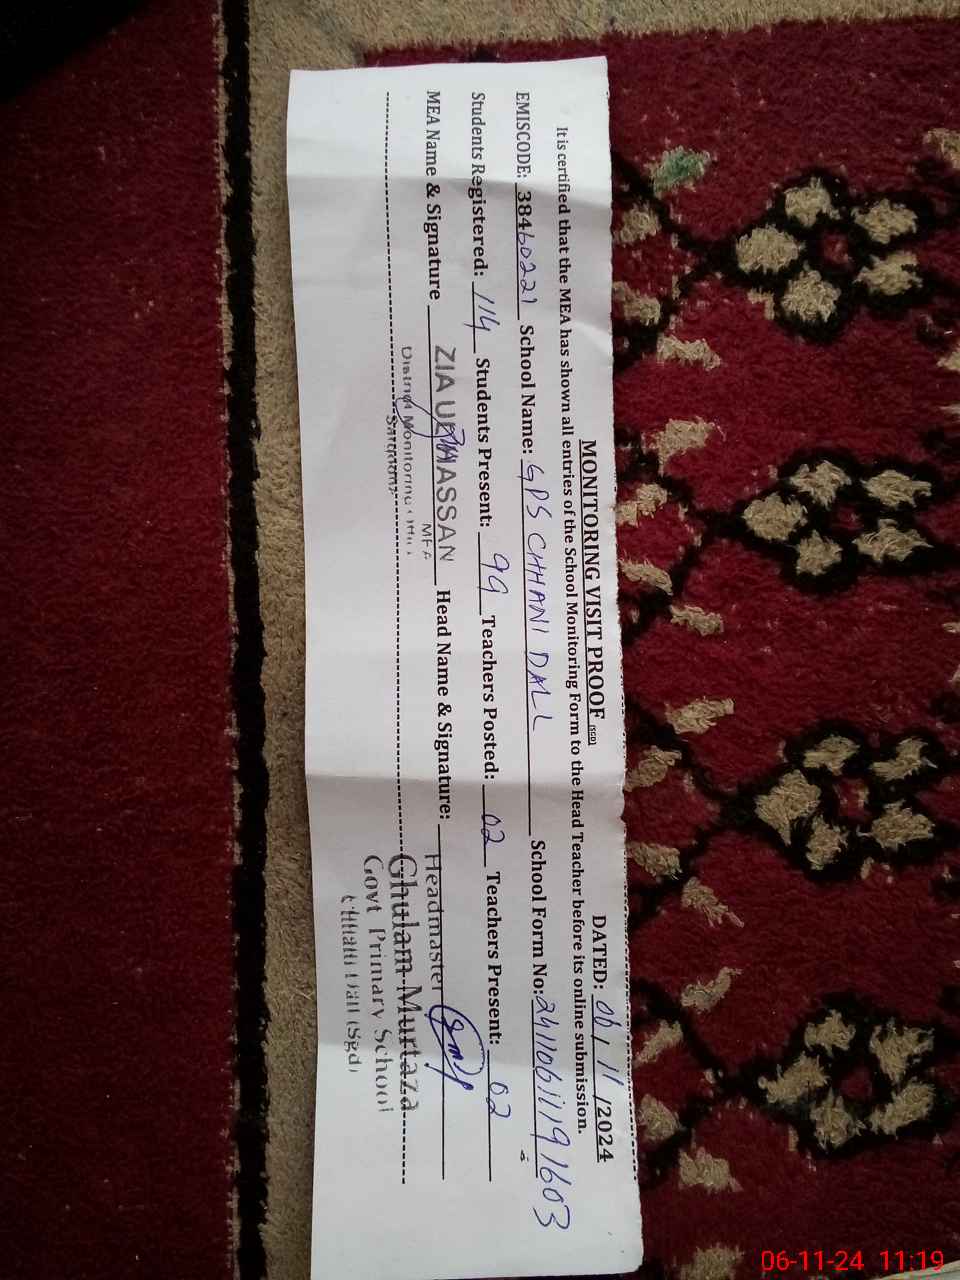 MONITORING VISIT PROOF (SGD) DATED: 06/11/2024
It is certified that the MEA has shown all entries of the School Monitoring Form to the Head Teacher before its online submission.
EMISCODE: 38460221 School Name: GPS CHHANI DALL School Form No: 24110611191603
Students Registered: 114 Students Present: 99 Teachers Posted: 02 Teachers Present: 02
MEA Name & Signature ZIA UL HASSAN Head Name & Signature: Headmaster
MEA
District Monitoring
Ghulam Murtaza
Govt Primary School
Chhani Dall (Sgd)
06-11-24 11:19